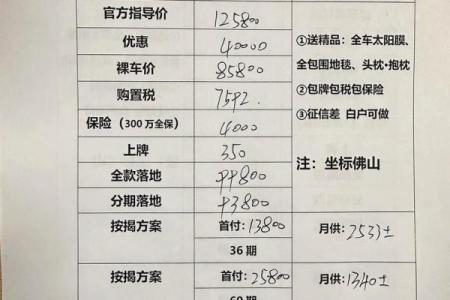 官方指导价 125800
优惠 40000
裸车价 85800
购置税 7592.
保险（300 万全保） 4000
上牌 350
全款落地
分期落地
①送精品：全车太阳膜、
全包围地毯、头枕·抱枕
②包牌包税包保险
③征信差 白户可做
注：坐标佛山
按揭方案 首付：13800 月供：2533±
36 期
按揭方案 首付：25800 月供：1340±
60 期